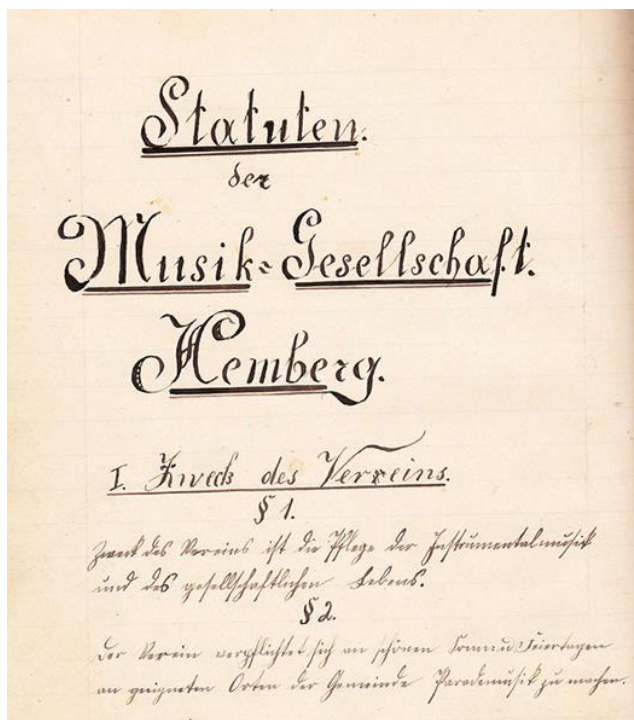 Statuten.
der
Musik-Gesellschaft.
Hemberg.
I. Zweck des Vereins.
§ 1.
Zweck des Vereins ist die Pflege der Instrumentalmusik
und des gesellschaftlichen Lebens.
§ 2.
Der Verein verpflichtet sich an schönen Sonn u Feiertagen
an geigneten Orten der Gemeinde Parademusik zu machen.